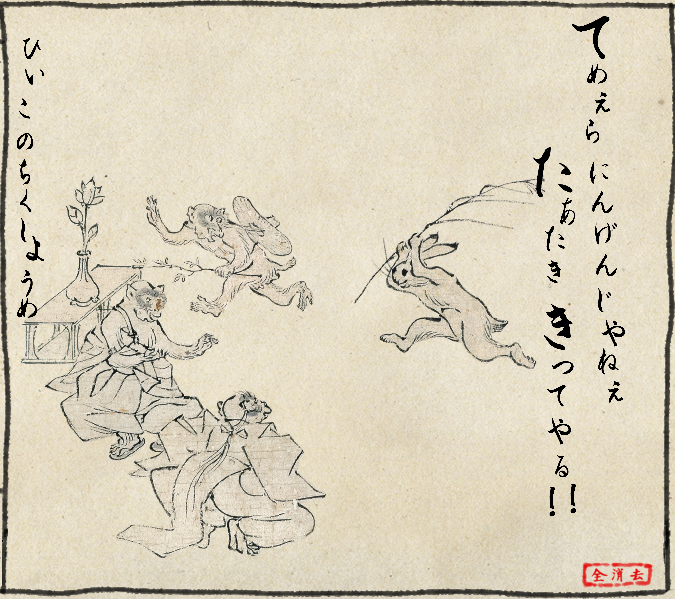 てめぇら にんげんじゃねぇ
たぁたき きってやる!!
ひぃ このちくしょうめ
全消去